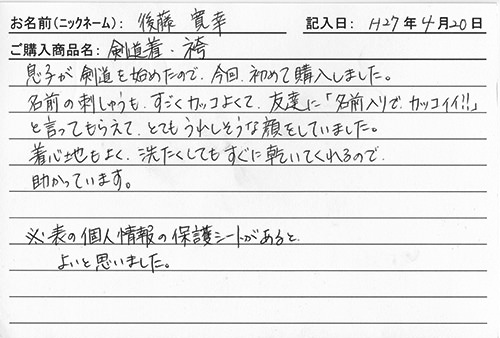 お名前(ニックネーム): 後藤 寛幸 記入日: H27年4月20日
ご購入商品名: 剣道着・袴
息子が剣道を始めたので、今回、初めて購入しました。
名前の刺しゅうも、すごくカッコよくて、友達に「名前入りで、カッコイイ!!」
と言ってもらえて、とてもうれしそうな顔をしていました。
着心地もよく、洗たくしてもすぐに乾いてくれるので、
助かっています。
※表の個人情報の保護シートがあると、
よいと思いました。